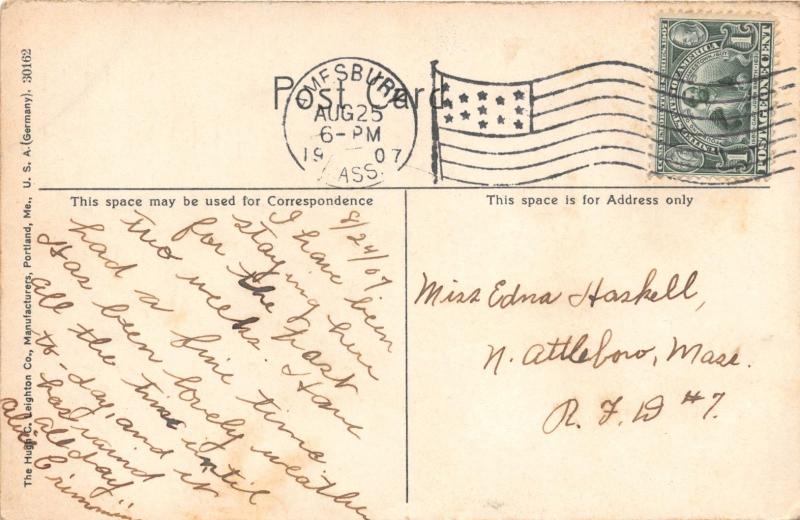 Post Card
OMESBURY
AUG 25
6-PM
1907
MASS.
1 POSTAGE ONE CENT 1
This space may be used for Correspondence
This space is for Address only
8/24/07
I have been
staying here
for the past
two weeks. Have
had a fine time.
Has been lovely weather
all the time until
to-day, and it
has raind
all day
Miss Edna Haskell,
N. Attleboro, Mass.
R. F. D #7.
The Hugh C. Leighton Co., Manufacturers, Portland, Me., U. S. A. (Germany). 30162